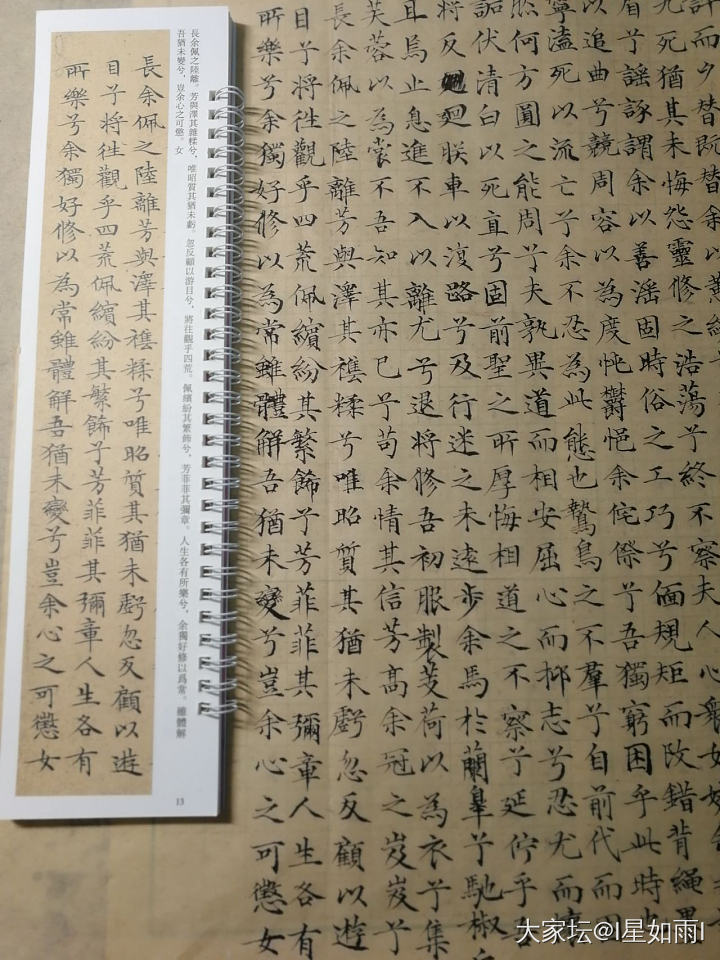 而夕替既替余以蕙纕
九死猶其未悔怨靈修之浩蕩兮終不察夫人心衆女
眉兮謠諑謂余以善滛固時俗之工巧兮偭規矩而改錯背繩墨
以追曲兮競周容以為度忳鬱悒余侘傺兮吾獨窮困乎此時也
寧溘死以流亡兮余不忍為此態也鷙鳥之不羣兮自前代而固
然何方圓之能周兮夫孰異道而相安屈心而抑志兮忍尤而攘
詬伏清白以死直兮固前聖之所厚悔相道之不察兮延佇乎吾
將反迴朕車以復路兮及行迷之未遠步余馬於蘭皋兮馳椒丘
且焉止息進不入以離尤兮退將修吾初服製芰荷以為衣兮集
芙蓉以為裳不吾知其亦已兮苟余情其信芳高余冠之岌岌兮
長余佩之陸離芳與澤其襍糅兮唯昭質其猶未虧忽反顧以遊
目兮將往觀乎四荒佩繽紛其繁飾兮芳菲菲其彌章人生各有
所樂兮余獨好修以為常雖體解吾猶未變兮豈余心之可懲女
長余佩之陸離。芳與澤其雜糅兮，唯昭質其猶未虧。忽反顧以游目兮，將往觀乎四荒。佩繽紛其繁飾兮，芳菲菲其彌章。人生各有所樂兮，余獨好修以爲常。雖體解
吾猶未變兮，豈余心之可懲。女
長余佩之陸離芳與澤其襍糅兮唯昭質其猶未虧忽反顧以遊
目兮將往觀乎四荒佩繽紛其繁飾兮芳菲菲其彌章人生各有
所樂兮余獨好修以為常雖體解吾猶未變兮豈余心之可懲女
13
大家坛@I星如雨I